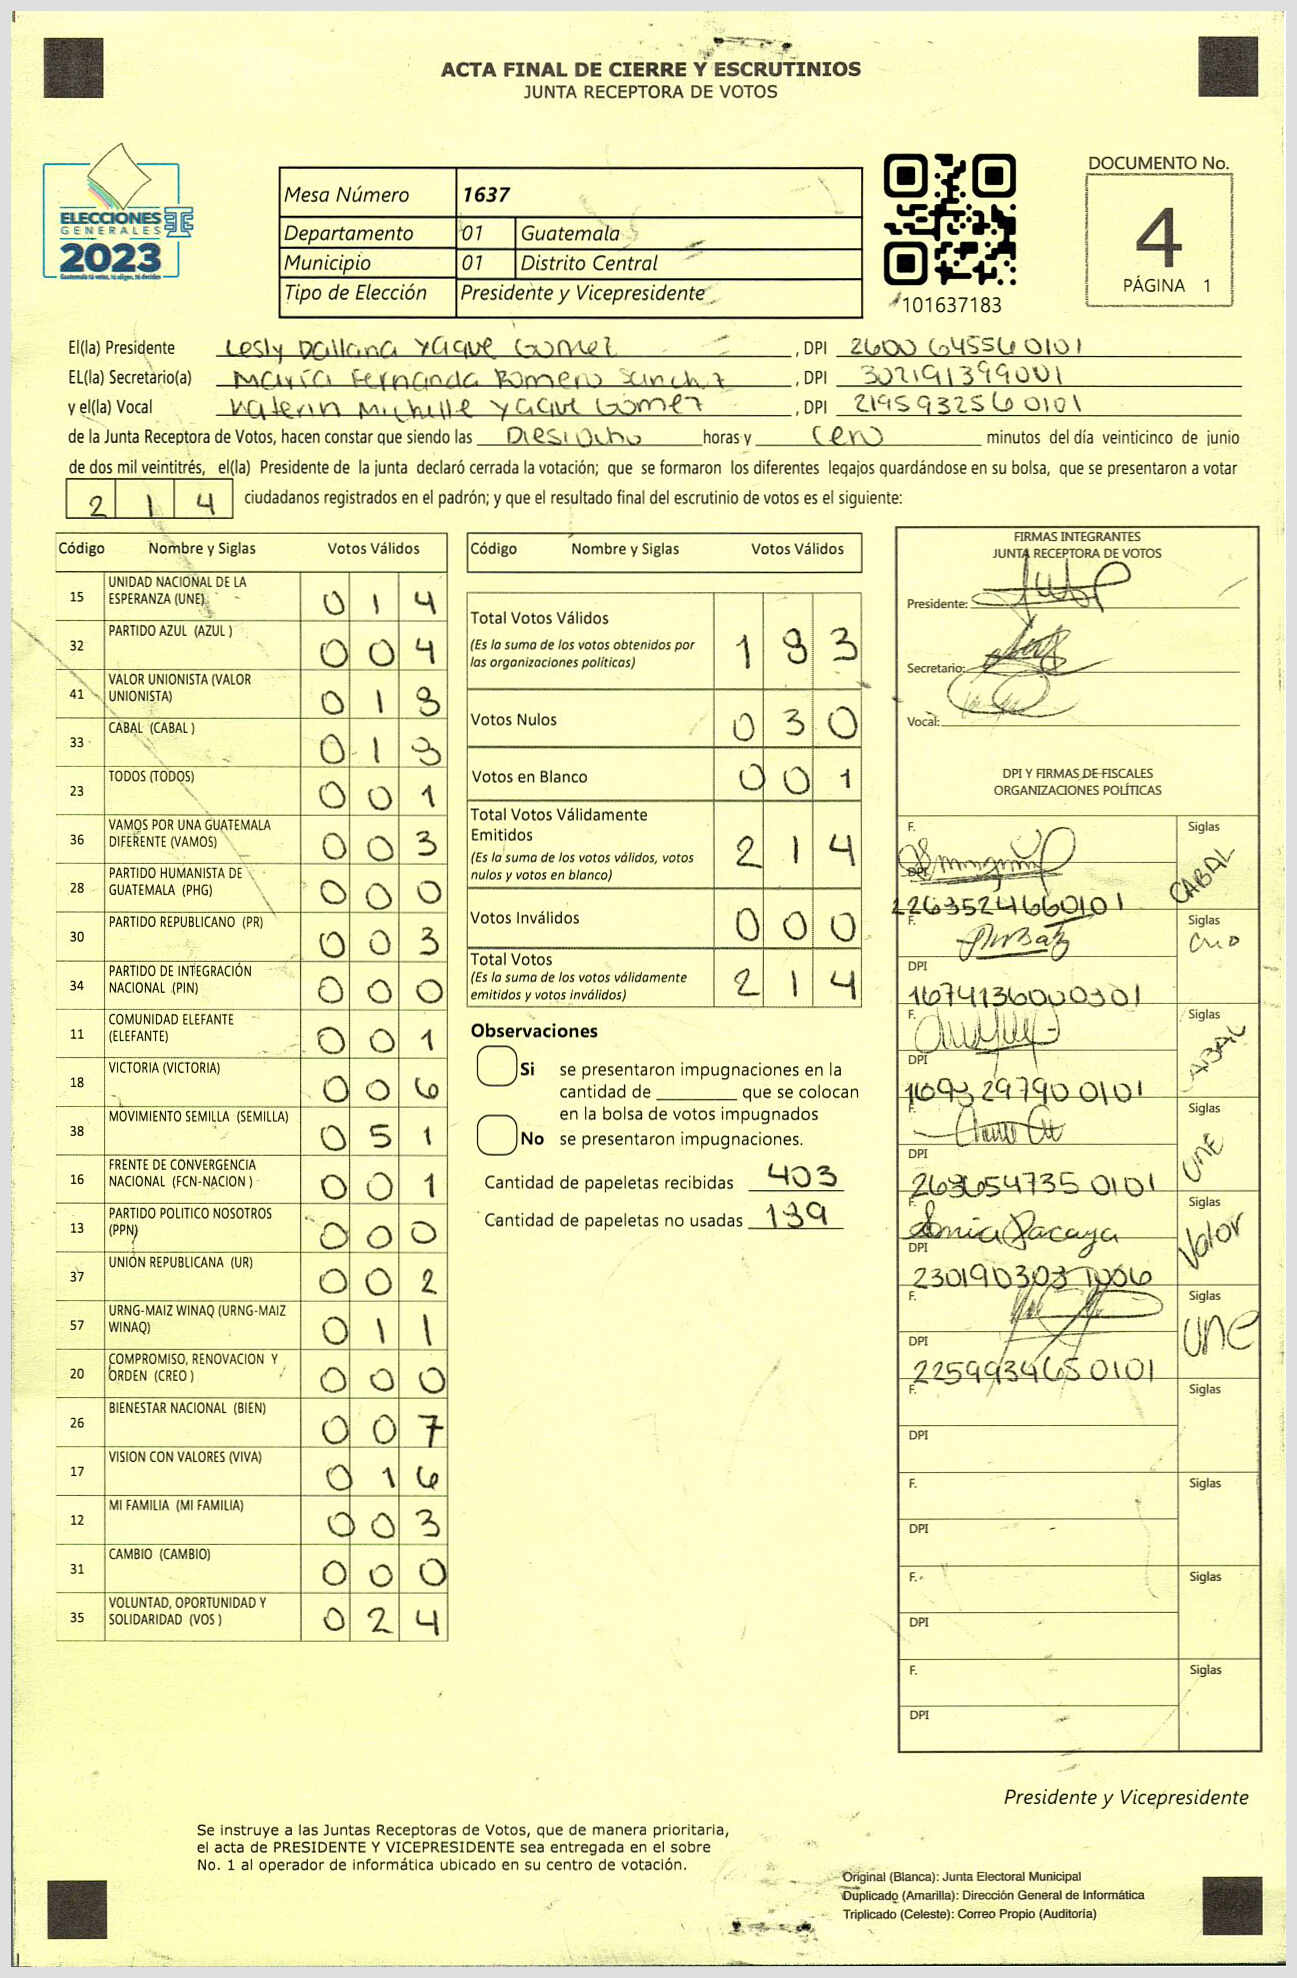 ACTA FINAL DE CIERRE Y ESCRUTINIOS
JUNTA RECEPTORA DE VOTOS
ELECCIONES
GENERALES
2023
Guatemala tú votas, tú eliges, tú decides
Mesa Número 1637
Departamento 01 Guatemala
Municipio 01 Distrito Central
Tipo de Elección Presidente y Vicepresidente
101637183
DOCUMENTO No.
4
PÁGINA 1
El(la) Presidente Lesly Dallana Yaque Gomez , DPI 2600 64556 0101
EL(la) Secretario(a) María Fernanda Romero Sanchez , DPI
y el(la) Vocal Katerin Michelle Yaque Gomez , DPI 2195932560101
de la Junta Receptora de Votos, hacen constar que siendo las Diesiocho horas y cero minutos del día veinticinco de junio
de dos mil veintitrés, el(la) Presidente de la junta declaró cerrada la votación; que se formaron los diferentes legajos quardándose en su bolsa, que se presentaron a votar
214 ciudadanos registrados en el padrón; y que el resultado final del escrutinio de votos es el siguiente:
Código Nombre y Siglas Votos Válidos
15 UNIDAD NACIONAL DE LA ESPERANZA (UNE) 014
32 PARTIDO AZUL (AZUL ) 004
41 VALOR UNIONISTA (VALOR UNIONISTA) 018
33 CABAL (CABAL ) 018
23 TODOS (TODOS) 001
36 VAMOS POR UNA GUATEMALA DIFERENTE (VAMOS) 003
28 PARTIDO HUMANISTA DE GUATEMALA (PHG) 000
30 PARTIDO REPUBLICANO (PR) 003
34 PARTIDO DE INTEGRACIÓN NACIONAL (PIN) 000
11 COMUNIDAD ELEFANTE (ELEFANTE) 001
18 VICTORIA (VICTORIA) 006
38 MOVIMIENTO SEMILLA (SEMILLA) 051
16 FRENTE DE CONVERGENCIA NACIONAL (FCN-NACION ) 001
13 PARTIDO POLITICO NOSOTROS (PPN) 000
37 UNIÓN REPUBLICANA (UR) 002
57 URNG-MAIZ WINAQ (URNG-MAIZ WINAQ) 011
20 COMPROMISO, RENOVACION Y ORDEN (CREO ) 000
26 BIENESTAR NACIONAL (BIEN) 007
17 VISION CON VALORES (VIVA) 016
12 MI FAMILIA (MI FAMILIA) 003
31 CAMBIO (CAMBIO) 000
35 VOLUNTAD, OPORTUNIDAD Y SOLIDARIDAD (VOS ) 024
Código Nombre y Siglas Votos Válidos
Total Votos Válidos 183
(Es la suma de los votos obtenidos por
las organizaciones políticas)
Votos Nulos 030
Votos en Blanco 001
Total Votos Válidamente
Emitidos 214
(Es la suma de los votos válidos, votos
nulos y votos en blanco)
Votos Inválidos 000
Total Votos 214
(Es la suma de los votos válidamente
emitidos y votos inválidos)
Observaciones
Si se presentaron impugnaciones en la
cantidad de ________ que se colocan
en la bolsa de votos impugnados
No se presentaron impugnaciones.
Cantidad de papeletas recibidas 403
Cantidad de papeletas no usadas 189
FIRMAS INTEGRANTES
JUNTA RECEPTORA DE VOTOS
Presidente:
Secretario:
Vocal:
DPI Y FIRMAS DE FISCALES
ORGANIZACIONES POLÍTICAS
F. Siglas CABAL
DPI 2263524660101
F. Siglas
DPI 1674136000301
F. Siglas
DPI 1693297900101
F. Siglas UNE
DPI 2636547350101
F. Sonia Pacaya Siglas Valor
DPI
F. Siglas UNE
DPI 2259934650101
F. Siglas
DPI
F. Siglas
DPI
F. Siglas
DPI
F. Siglas
DPI
Presidente y Vicepresidente
Se instruye a las Juntas Receptoras de Votos, que de manera prioritaria,
el acta de PRESIDENTE Y VICEPRESIDENTE sea entregada en el sobre
No. 1 al operador de informática ubicado en su centro de votación.
Original (Blanca): Junta Electoral Municipal
Duplicado (Amarilla): Dirección General de Informática
Triplicado (Celeste): Correo Propio (Auditoría)